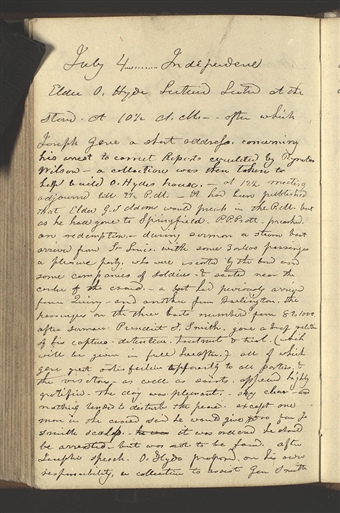 July 4......... Independence
Elder O. Hyde Lectured at the
stand. at 10½ A.M. - after which
Joseph Gave a short address. concerning
his arrest to correct Reports circulated by Reynolds
Wilson - a collection was then taken to
help build O. Hydes house. - at 1½ meeting
adjourned till P.M. - It had been published
that Elder G. J. Adams would preach in the P.M. but
as he had gone to Springfield. P. P. Pratt. preached.
on redemption - during sermon a steam boat
arrived from St Louis. with some passengers
a pleasure party. who were escorted by the band and
some companies of Soldiers & seated near the
center of the crowd. - a boat had previously arrived
from Quincy - and another from Burlington. the
passengers on the three boats numbered from 8 to 1000
after sermon President J. Smith. gave a brief
of his capture. detention. treatment & trial. (which
will be given in full hereafter.) all of which
gave great satisfaction apparently to all parties. &
the visitors, as well as saints. appeared highly
gratified. The day was pleasant. - sky clear -
nothing tended to disturb the peace. except one
man in the crowd said he would give for J.
Smiths scalp. it was ordered he should
be arrested - but was not to be found. after
Josephs speech. O. Hyde proposed, on his own
responsibility, a collection to assist Gen Smith